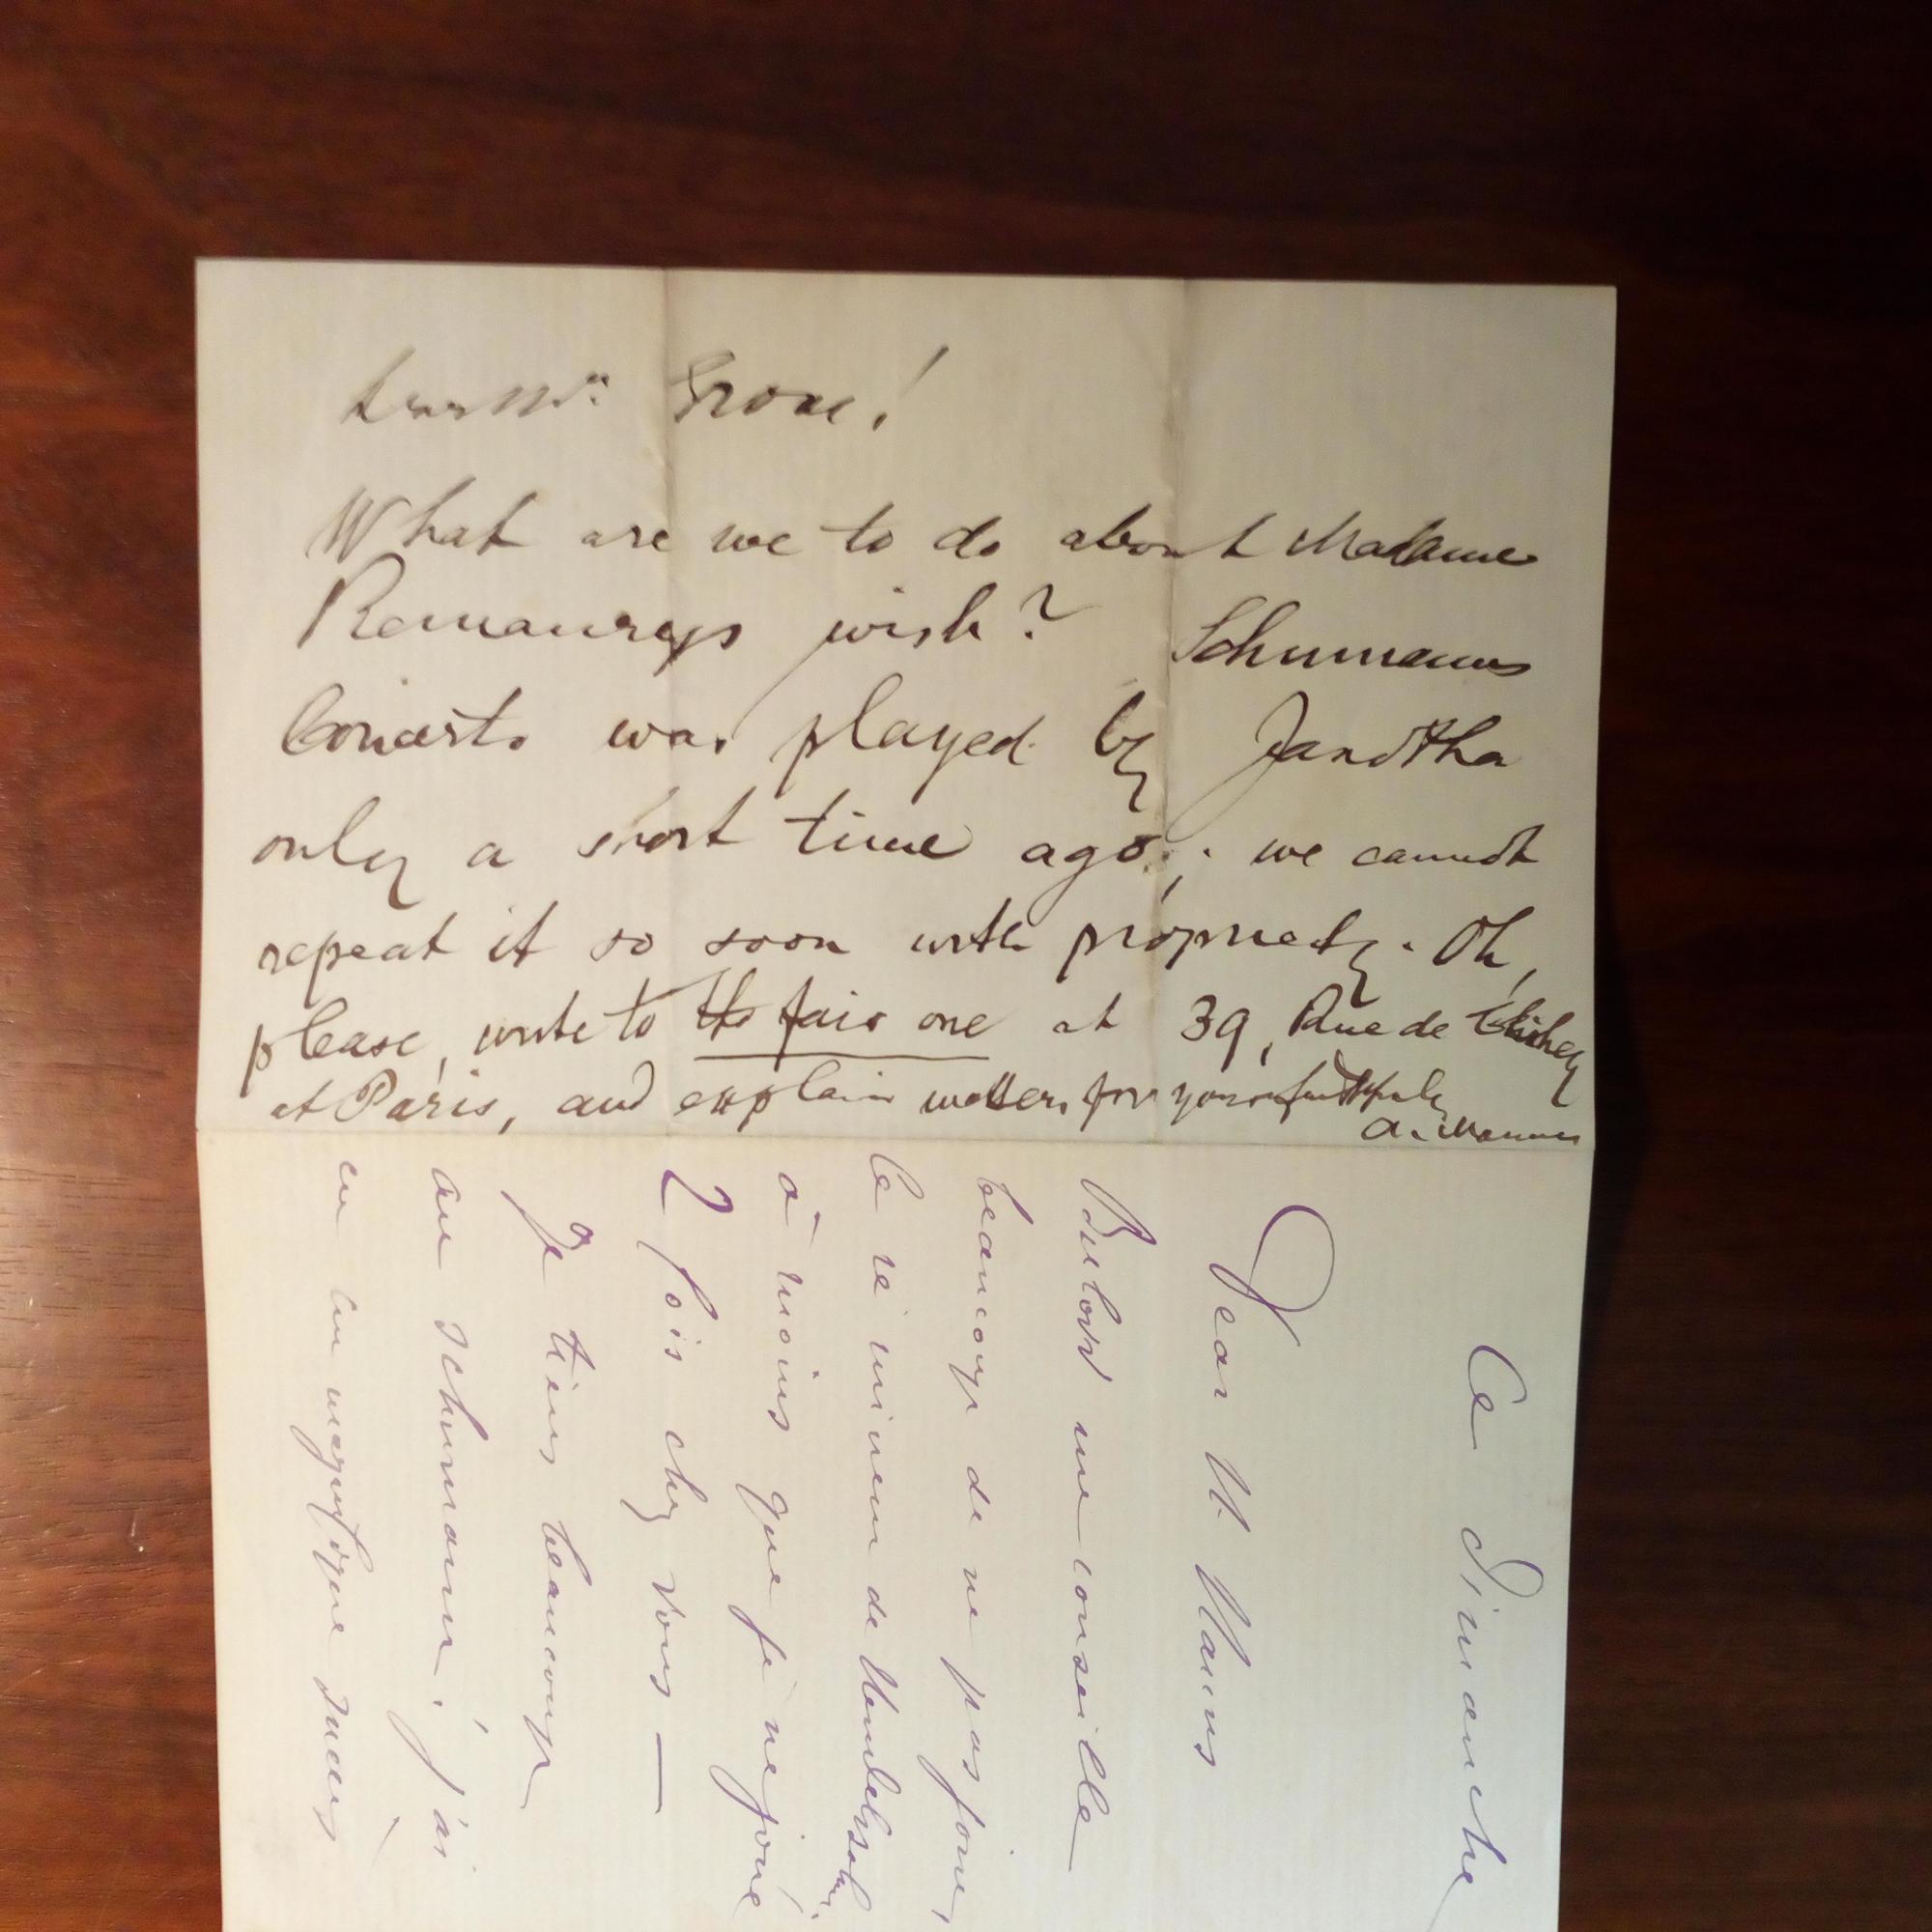 Dear Mr. Grove!
What are we to do about Madame
Remaurys wish? Schumanns
Concerto was played by Janotha
only a short time ago; we cannot
repeat it so soon with propriety. Oh,
please, write to the fair one at 39, Rue de Clichy
at Paris, and explain matters for yours faithfully
A. Manns
Ce dimanche
Dear M Manns
Bulow me conseille
beaucoup de ne pas jouer,
le ré mineur de Mendelssohn,
à moins que je ne joue
2 fois chez vous —
Je tiens beaucoup
au Schumann, j'ai
eu un magnifique succès